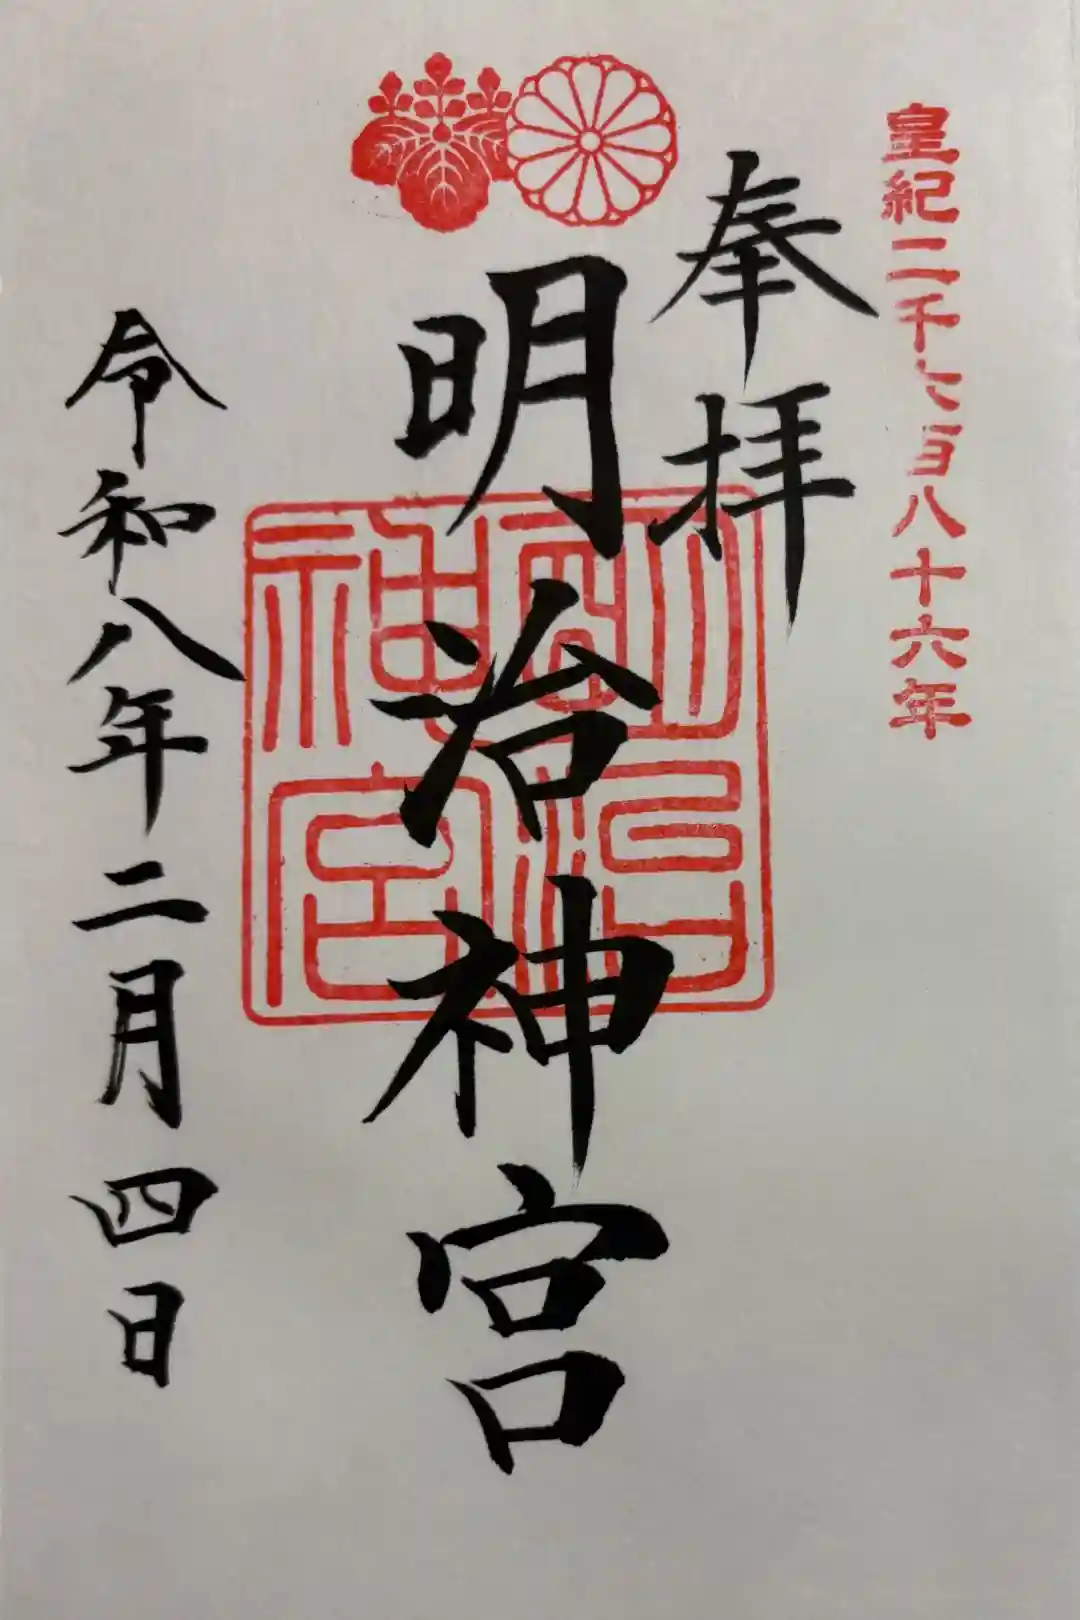 皇紀二千七百八十六年
奉拝
明治神宮
明治神宮
令和八年二月四日